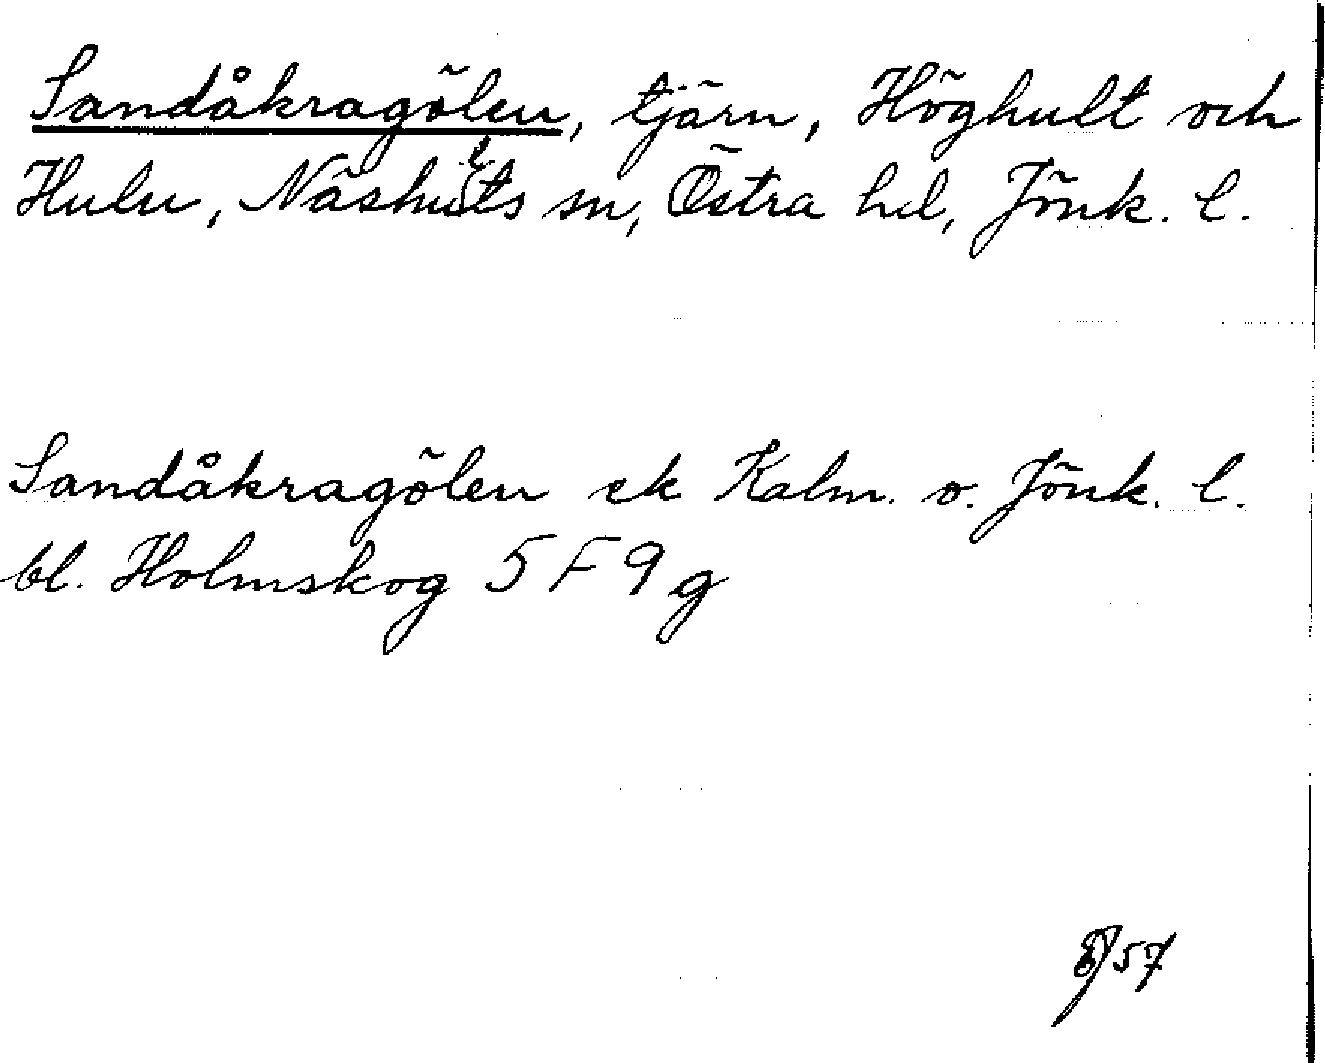 Sandåkragölen, tjärn, Höghult och
Hulu, Näshults sn, Östra hd, Jönk. l.
Sandåkragölen ek Kalm. o. Jönk. l.
bl. Holmskog 5 F 9 g
57